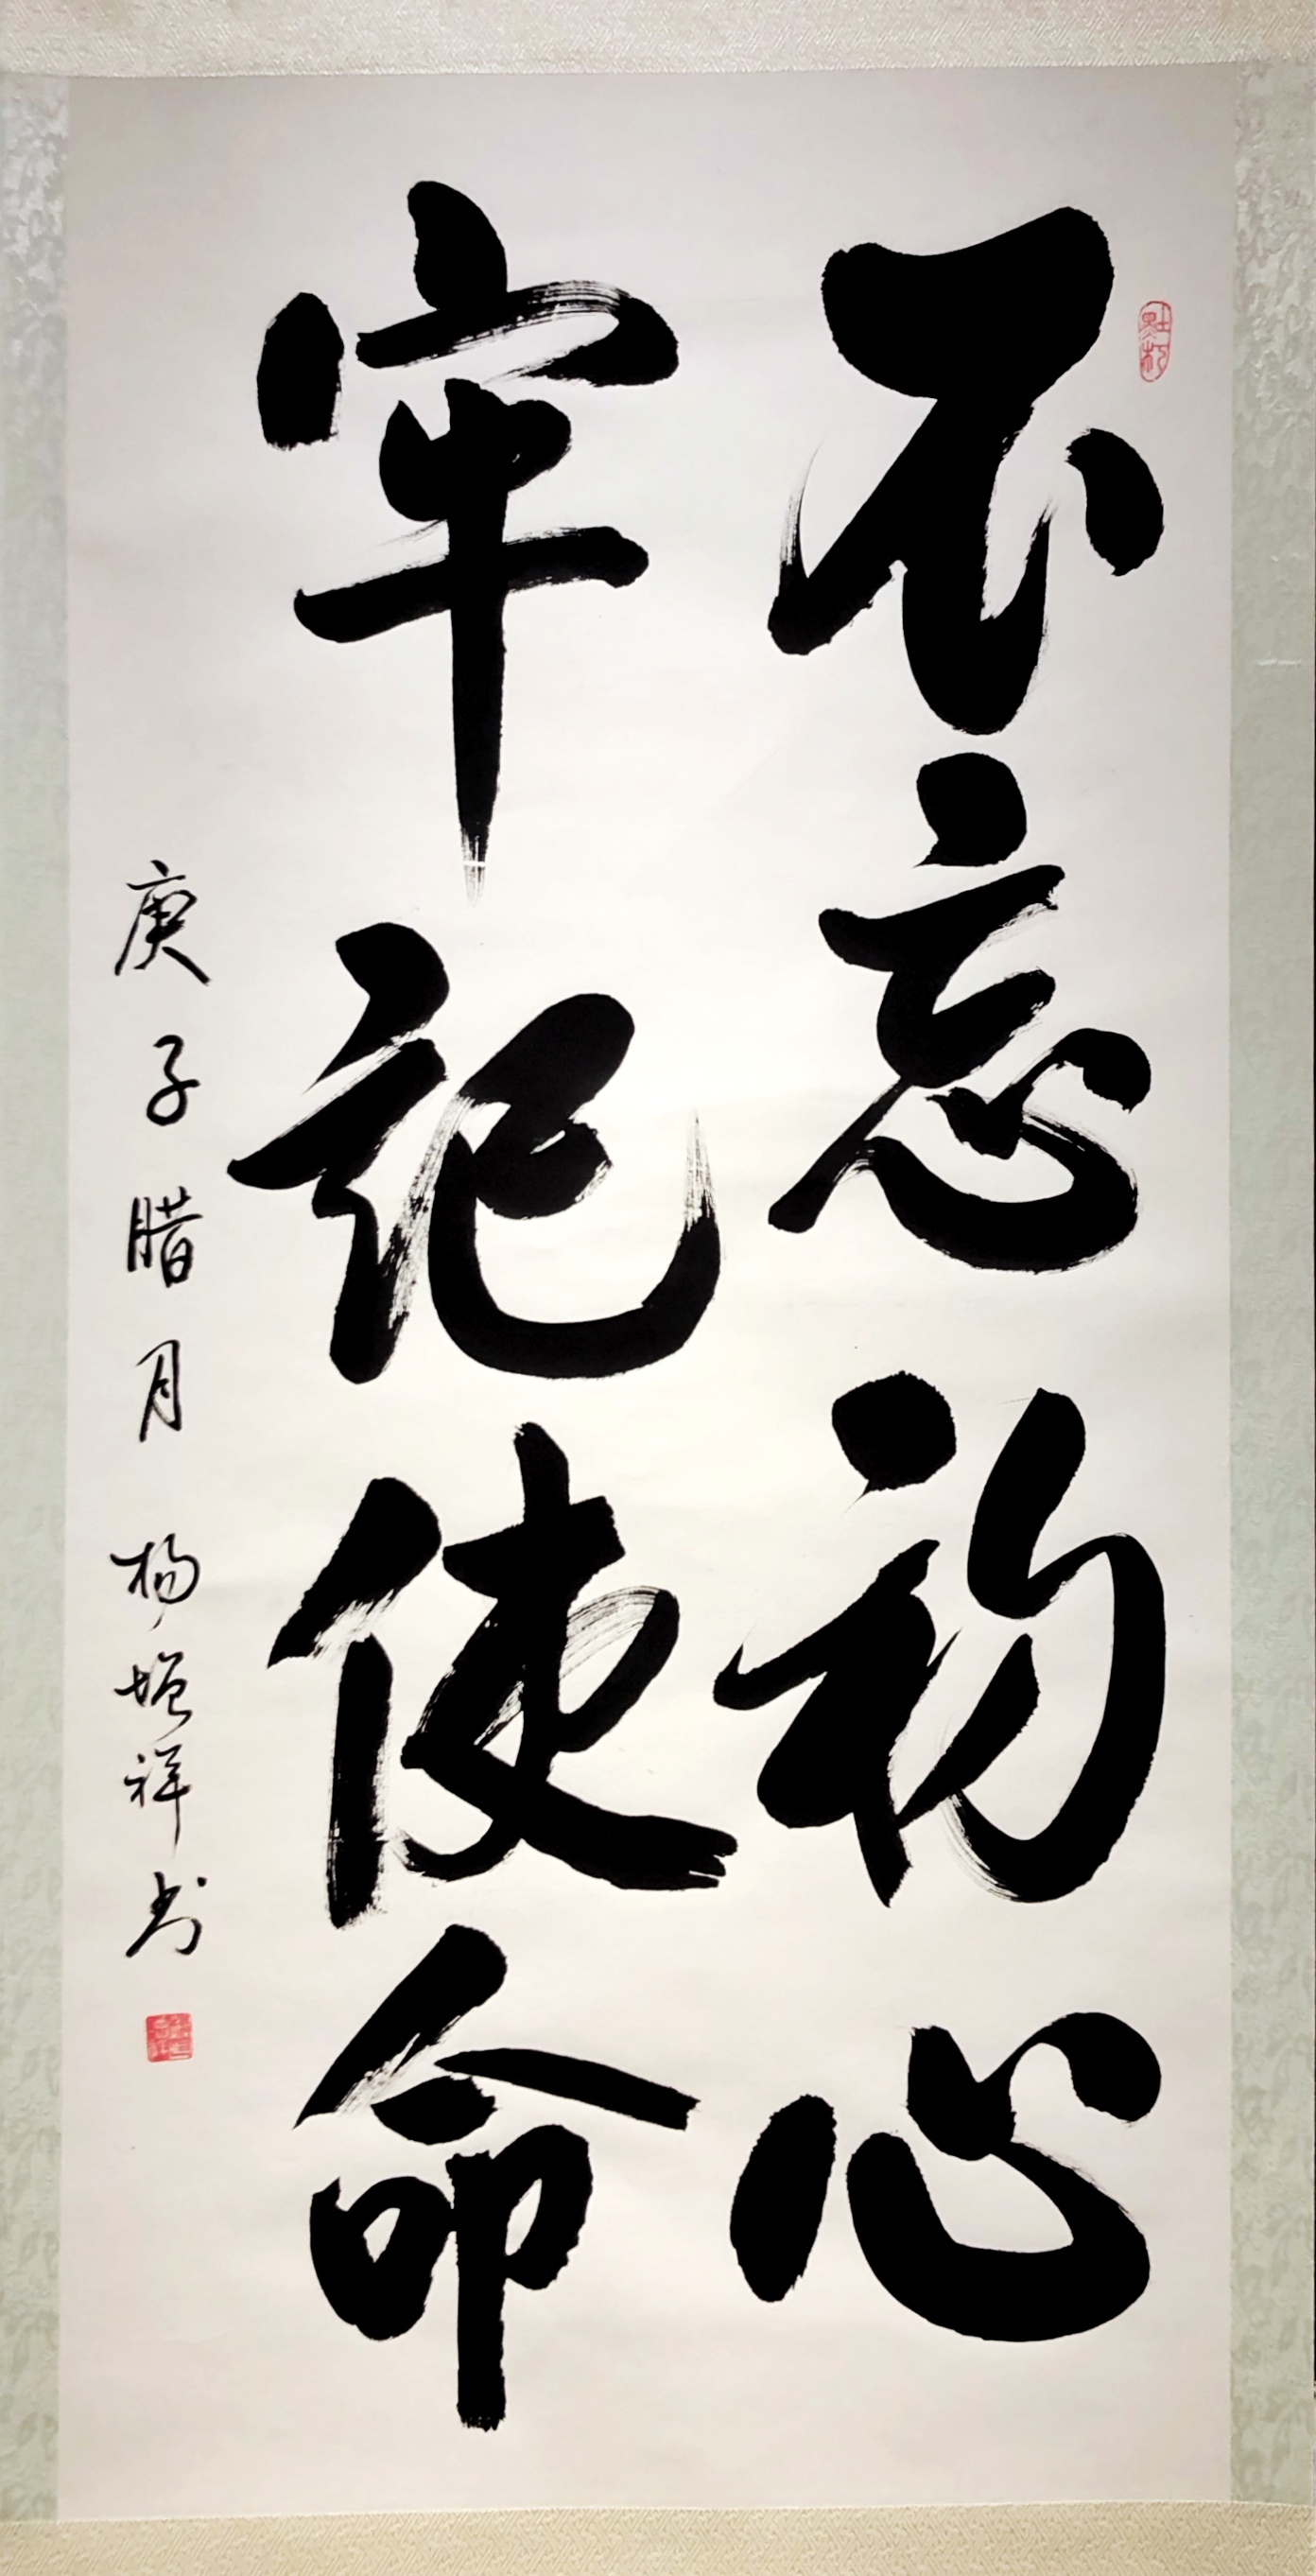 不忘初心
牢记使命
庚子腊月 杨增祥书